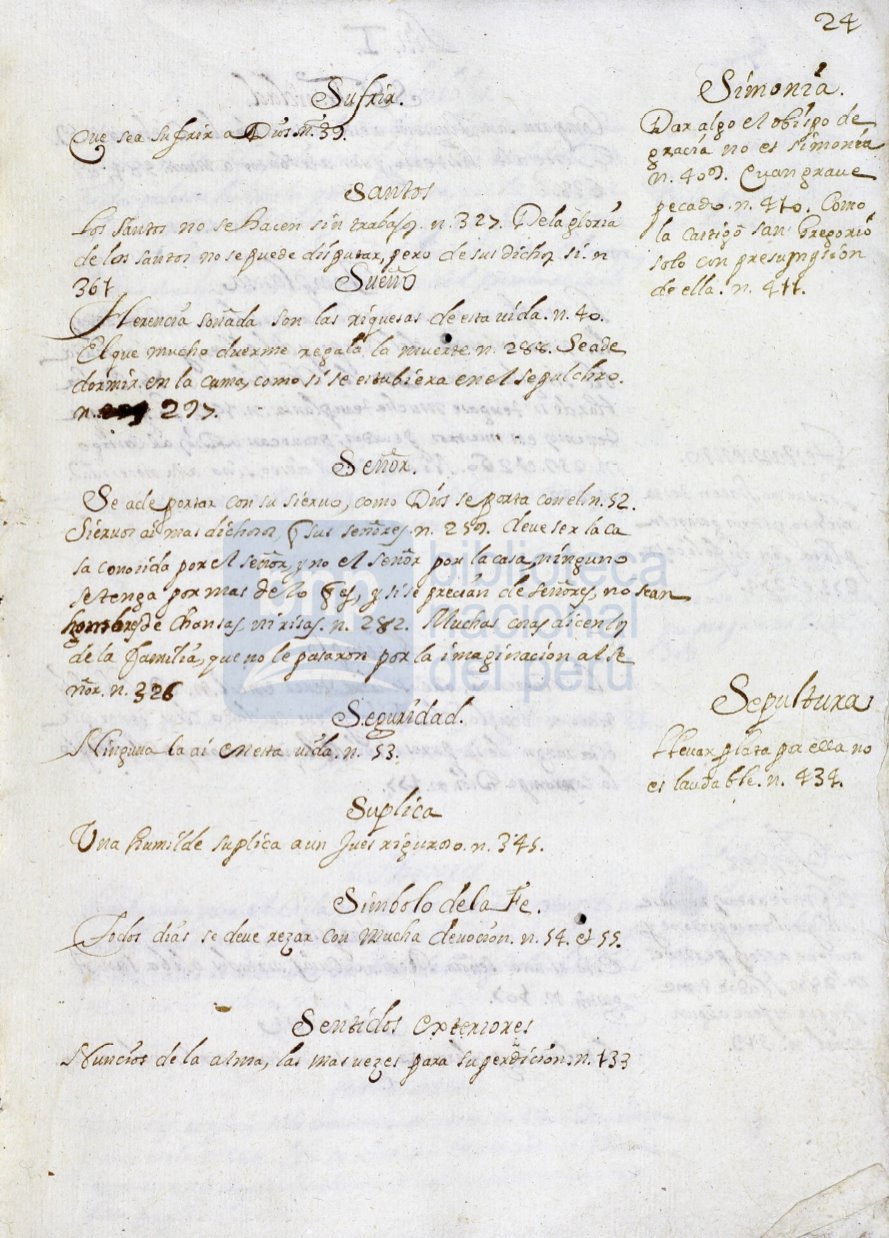 24
Sufrir.
Que sea sufrir a Dios n. 39.
Santos
Los santos no se hacen sin trabajos. n. 327. De la gloria
de los santos no se puede disputar, pero de sus dichos si. n
361
Sueño
Herencia soñada son las riquesas de esta uida. n. 40.
El que mucho duerme regala la muerte. n. 288. Se a de
dormir en la cama, como si se estubiera en el sepulchro.
n. 297.
Señor.
Se a de portar con su sieruo, como Dios se porta con el. n. 52.
Sieruos ai mas dichosos, q sus señores. n. 259. deve ser la ca
sa conosida por el señor, y no el señor por la casa, ninguno
se tenga por mas de lo q es, y si se precian de señores, no sean
hombres de chansas, ni risas. n. 282. Muchas cosas dicen los
de la familia, que no le pasaron por la imaginacion al se
ñor. n. 326
Seguridad.
Ninguna la ai en esta uida. n. 53.
Suplica
Una humilde suplica a un Jues riguroso. n. 345.
Simbolo de la Fe.
Todos dias se deve rezar con mucha devocion. n. 54. et 55.
Sentidos exteriores
Nuncios de la alma, las mas vezes para su perdicion. n. 133
Simonia.
Dar algo el obispo de
gracia no es simonia
n. 409. Cuan graue
pecado. n. 410. Como
la castigò san Gregorio
solo con presumpsion
de ella. n. 411.
Sepultura
Lleuar plata por ella no
es laudable. n. 434.
biblioteca
nacional
del perú